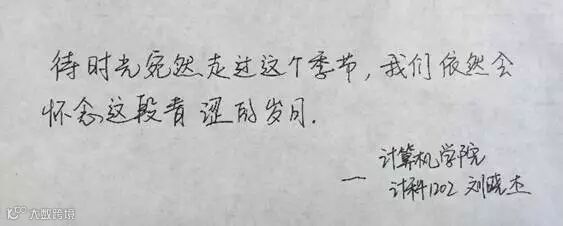 待时光宛然走过这个季节，我们依然会
怀念这段青涩的岁月.
计算机学院
— 计科1202 刘晓杰
公众号 大数跨境